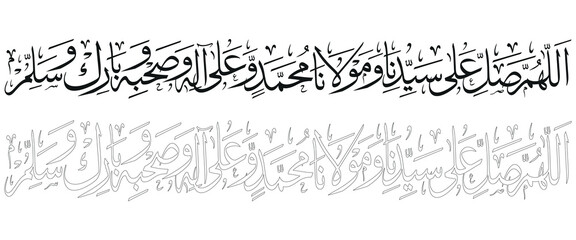 اَللّٰهُمَّ صَلِّ عَلٰى سَيِّدِنَا وَمَوْلَانَا مُحَمَّدٍ وَّعَلٰى اٰلِهٖ وَصَحْبِهٖ وَبَارِكْ وَسَلِّمْ
اَللّٰهُمَّ صَلِّ عَلٰى سَيِّدِنَا وَمَوْلَانَا مُحَمَّدٍ وَّعَلٰى اٰلِهٖ وَصَحْبِهٖ وَبَارِكْ وَسَلِّمْ